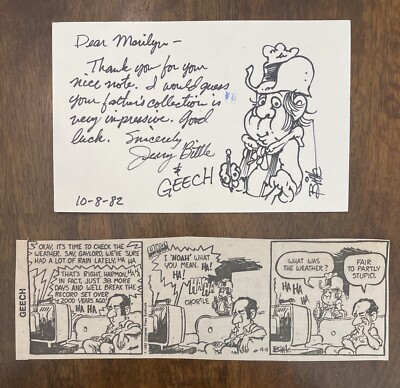 Dear Marilyn—
Thank you for your
nice note. I would guess
your father's collection is
very impressive. Good
luck. Sincerely
Jerry Bittle
&
GEECH
10-8-82
Bittle
GEECH
OKAY, IT'S TIME TO CHECK THE
WEATHER. SAY, GAYLORD, WE'VE SURE
HAD A LOT OF RAIN LATELY. HA HA
THAT'S RIGHT, HARMON.
IN FACT, JUST 38 MORE
DAYS AND WE'LL BREAK THE
RECORD SET OVER
2000 YEARS AGO!
HA HA
I 'NOAH' WHAT
YOU MEAN. HA!
HA!
HA!
CHORTLE
WHAT WAS
THE WEATHER?
HA
HA
HA!
FAIR TO
PARTLY
STUPID.